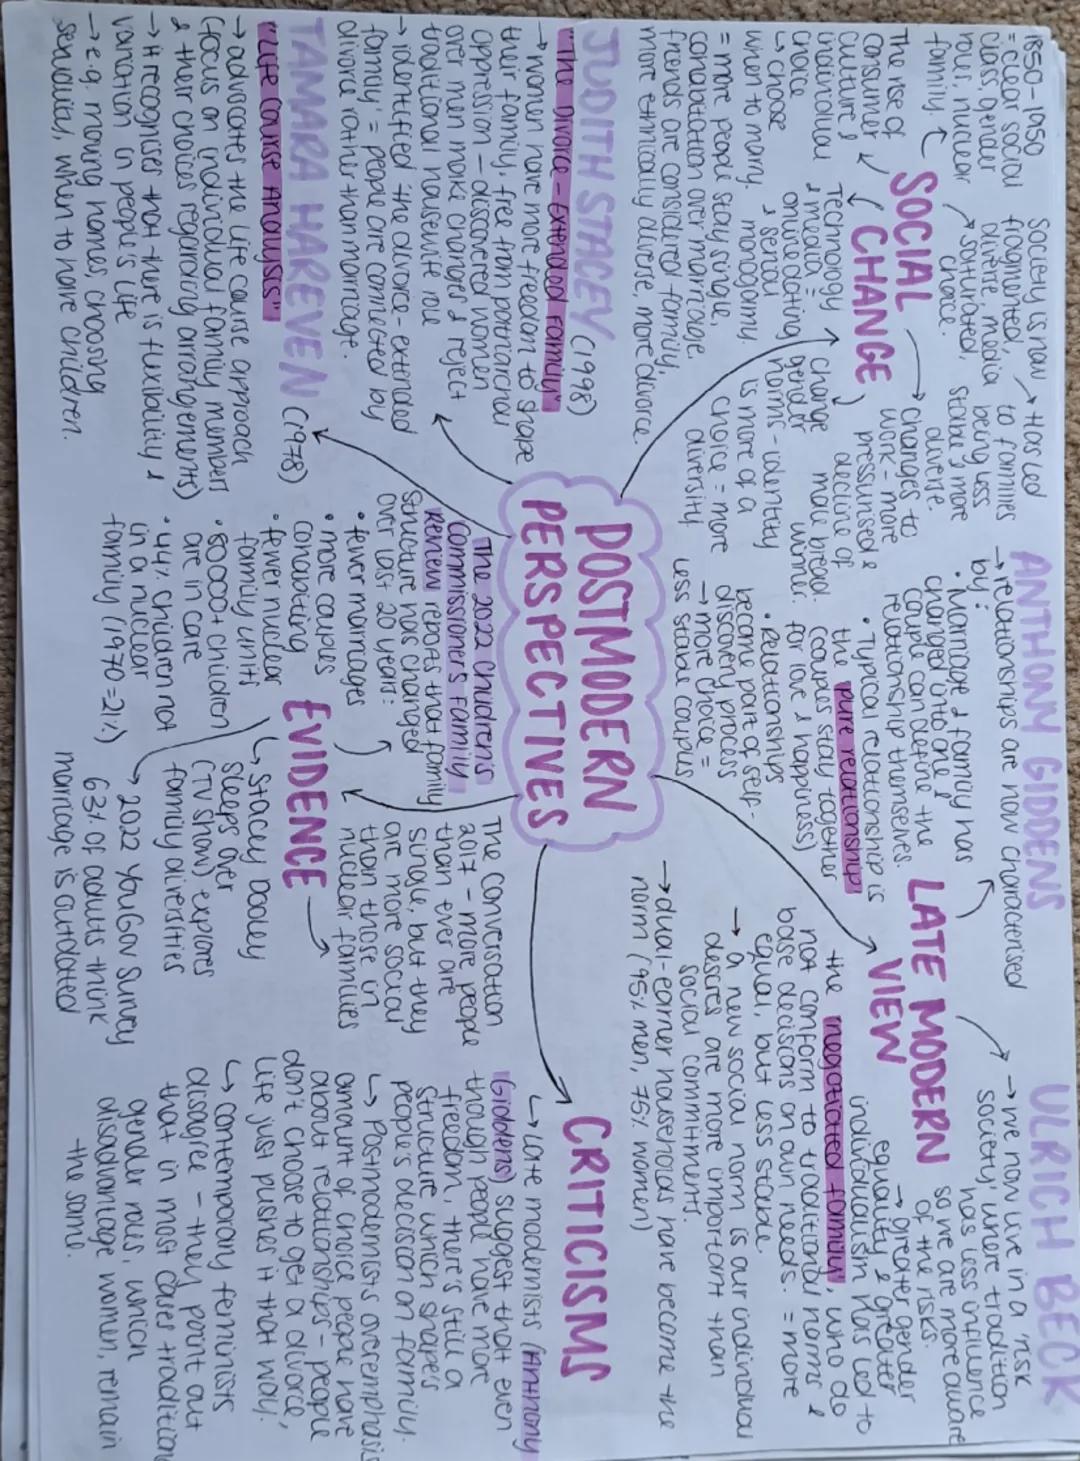 POSTMODERN
PERSPECTIVES
SOCIAL
CHANGE
1850-1950
= clear social
class, gender
roles, nuclear
family.
Society is now
fragmented,
diverse, media
saturated,
choice.
→ Has led
to families
being less
stable, more
diverse.
→ changes to
work - more
pressurised &
decline of
male bread-
winner.
The rise of
consumer
culture &
individual
choice
↳ choose
when to marry.
Technology
& media =
online dating
& serial
monogamy.
change
gender
norms - identity
is more of a
choice = more
diversity
= more people stay single,
cohabitation over marriage,
friends are considered family,
more ethnically diverse, more divorce.
JUDITH STACEY (1998)
"The Divorce-Extended Family"
→ women have more freedom to shape
their family, free from patriarchal
oppression - discovered women
over men make changes & reject
traditional housewife role
→ identified 'the divorce-extended
family' = people are connected by
divorce rather than marriage.
TAMARA HAREVEN (1978)
"Life Course Analysis"
→ advocates the life course approach
(focus on individual family members
& their choices regarding arrangements)
→ it recognises that there is flexibility &
variation in people's life
→ e.g. moving homes, choosing
sexuality, when to have children.
ANTHONY GIDDENS
→ relationships are now characterised
by:
• Marriage & family has
changed into one
couple can define the
relationship themselves.
• Typical relationship is
the pure relationship
(couples stay together
for love & happiness)
• Relationships
become part of self-
discovery process
→ more choice =
less stable couples
LATE MODERN
VIEW
ULRICH BECK
→ we now live in a 'risk
society', where tradition
has less influence
so we are more aware
of the risks.
→ greater gender
equality & greater
individualism has led to
the 'negotiated family', who do
not conform to traditional norms &
base decisions on own needs. = more
equal, but less stable.
→ a new social norm is our individual
desires are more important than
social commitments.
→ dual-earner households have become the
norm (95% men, 75% women)
EVIDENCE
The 2022 Children's
Commissioners Family
Renew reports that family
structure has changed
over last 20 years:
• fewer marriages
• more couples
cohabiting
• fewer nuclear
family units
• 80000+ children
are in care
• 44% children not
in a nuclear
family (1970 = 21%)
The conversation
2017 - more people
than ever are
single, but they
are more social
than those in
nuclear families
↳ Stacey Dooley
Sleeps Over
(TV show) explores
family diversities
↳ 2022 YouGov Survey
63% of adults think
marriage is outdated
CRITICISMS
↳ Late modernists (Anthony
Giddens) suggest that even
though people have more
freedom, there's still a
structure which shapes
people's decision on family.
↳ Postmodernists overemphasis
amount of choice people have
about relationships - people
don't choose to get a divorce,
life just pushes it that way.
↳ contemporary feminists
disagree - they point out
that in most cases tradition
gender roles, which
disadvantage women, remain
the same.